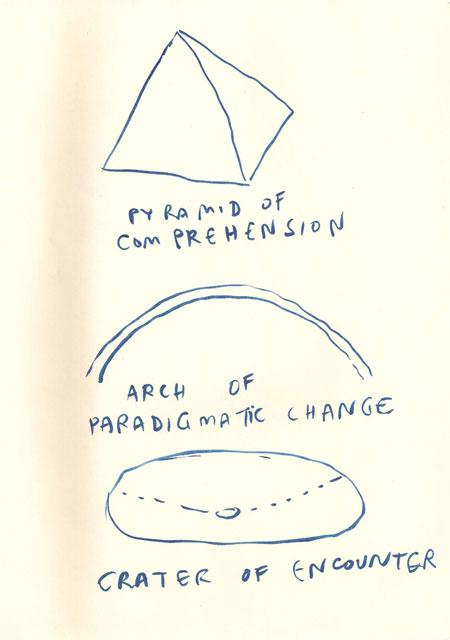 PYRAMID OF
COMPREHENSION
ARCH OF
PARADIGMATIC CHANGE
CRATER OF ENCOUNTER